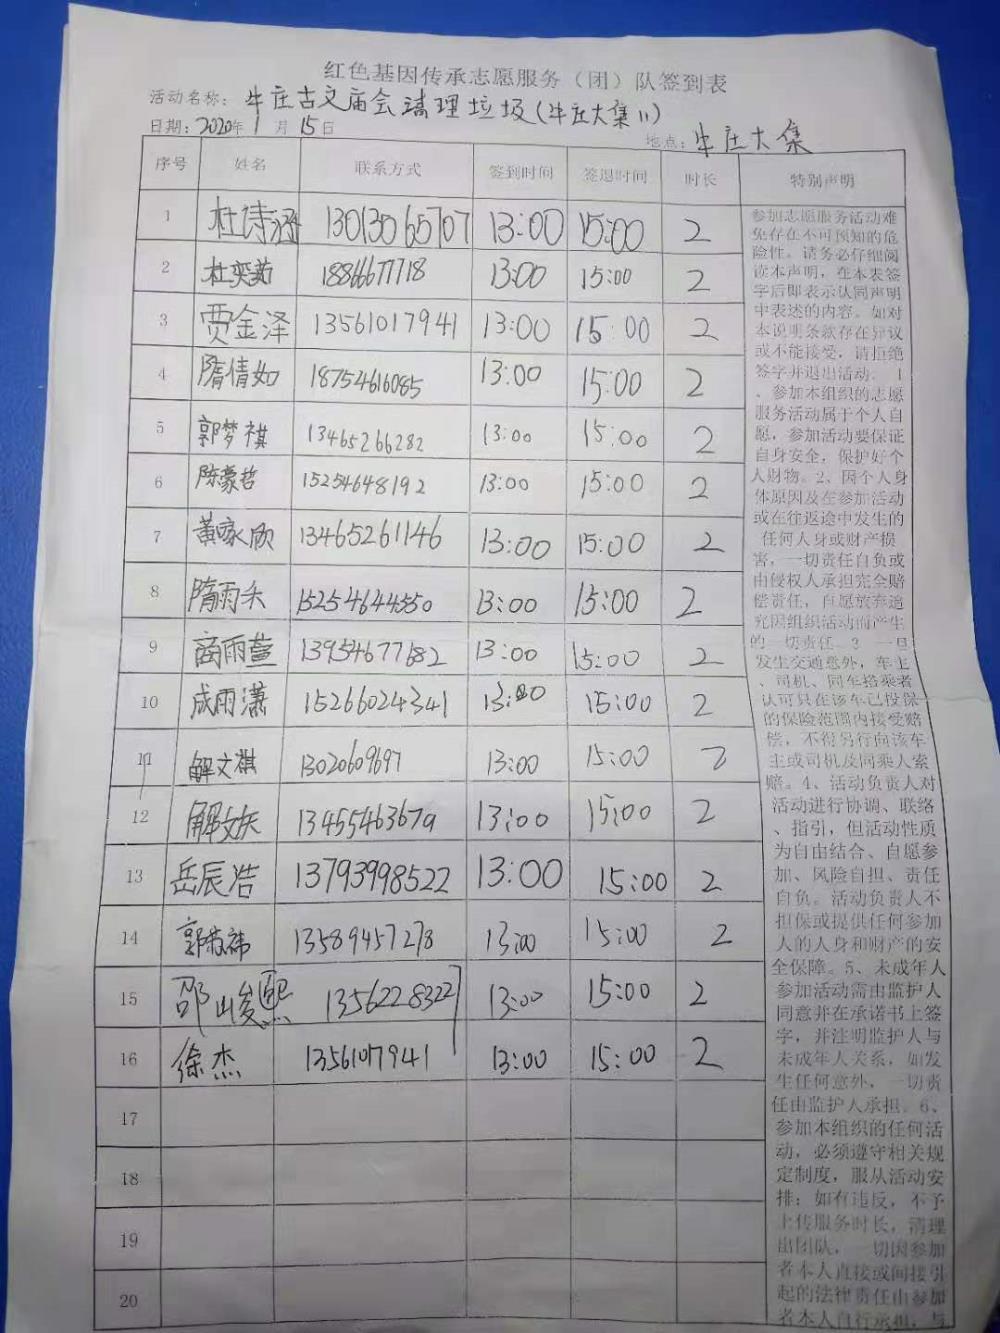 红色基因传承志愿服务（团）队签到表
活动名称：牛庄古文庙会清理垃圾(牛庄大集11)
日期：2020年1月15日
地点：牛庄大集
序号 姓名 联系方式 签到时间 签退时间 时长 特别声明
1 杜诗涵 13013065707 13:00 15:00 2
2 杜奕茹 18866677718 13:00 15:00 2
3 贾金泽 13561017941 13:00 15:00 2
4 隋倩如 18754616085 13:00 15:00 2
5 郭梦祺 13465266282 13:00 15:00 2
6 陈蒙哲 15254648192 13:00 15:00 2
7 黄家欣 13465261146 13:00 15:00 2
8 隋雨禾 15254644550 13:00 15:00 2
9 商雨萱 13954677182 13:00 15:00 2
10 成雨潇 15266024341 13:00 15:00 2
11 解文祺 13020609697 13:00 15:00 2
12 13455463679 13:00 15:00 2
13 岳辰浩 13793998522 13:00 15:00 2
14 13589457278 13:00 15:00 2
15 邵峻熙 13562283227 13:00 15:00 2
16 徐杰 1356107941 13:00 15:00 2
17
18
19
20
参加志愿服务活动难
免存在不可预知的危
险性。请务必仔细阅
读本声明，在本表签
字后即表示认同声明
中表述的内容。如对
本说明条款存在异议
或不能接受，请拒绝
签字并退出活动。1
、参加本组织的志愿
服务活动属于个人自
愿，参加活动要保证
自身安全，保护好个
人财物。2、因个人身
体原因及在参加活动
或在往返途中发生的
任何人身或财产损
害，一切责任自负或
由侵权人承担完全赔
偿责任，自愿放弃追
究因组织活动而产生
的一切责任。3、一旦
发生交通意外，车主
、司机、同车搭乘者
认可只在该车已投保
的保险范围内接受赔
偿，不得另行向该车
主或司机及同乘人索
赔。4、活动负责人对
活动进行协调、联络
、指引，但活动性质
为自由结合、自愿参
加、风险自担、责任
自负。活动负责人不
担保或提供任何参加
人的人身和财产的安
全保障。5、未成年人
参加活动需由监护人
同意并在承诺书上签
字，并注明监护人与
未成年人关系，如发
生任何意外，一切责
任由监护人承担。6、
参加本组织的任何活
动，必须遵守相关规
定制度，服从活动安
排；如有违反，不予
上传服务时长，清理
出团队，一切因参加
者本人直接或间接引
起的法律责任由参加
者本人自行承担，与